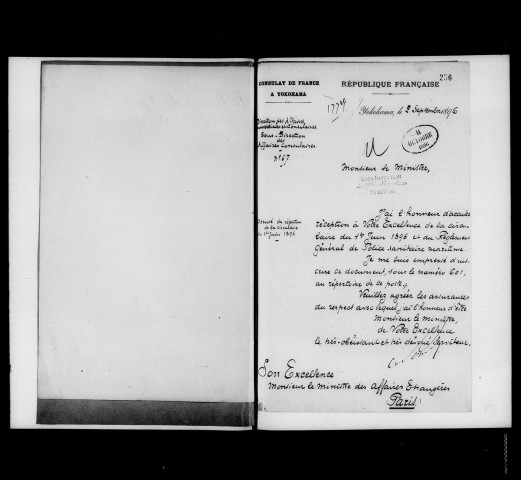 236
CONSULAT DE FRANCE
A YOKOHAMA
RÉPUBLIQUE FRANÇAISE
Yokohama, le 2 Septembre 1896
Direction des Affaires
Commerciales et Consulaires
Sous-Direction
des
Affaires Consulaires
N° 67.
11
OCTOBRE
1896
Monsieur le Ministre,
Accusé de réception
de la circulaire
du 1er Juin 1896
J'ai l'honneur d'accuser
réception à Votre Excellence de la circu-
laire du 1er Juin 1896 et du Règlement
Général de Police sanitaire maritime.
Je me suis empressé d'ins-
crire ce document, sous le numéro 601,
au répertoire de ce poste.
Veuillez agréer les assurances
du respect avec lequel j'ai l'honneur d'être
Monsieur le Ministre,
de Votre Excellence
le très-obéissant et très dévoué serviteur.
Son Excellence
Monsieur le Ministre des Affaires Etrangères
Paris